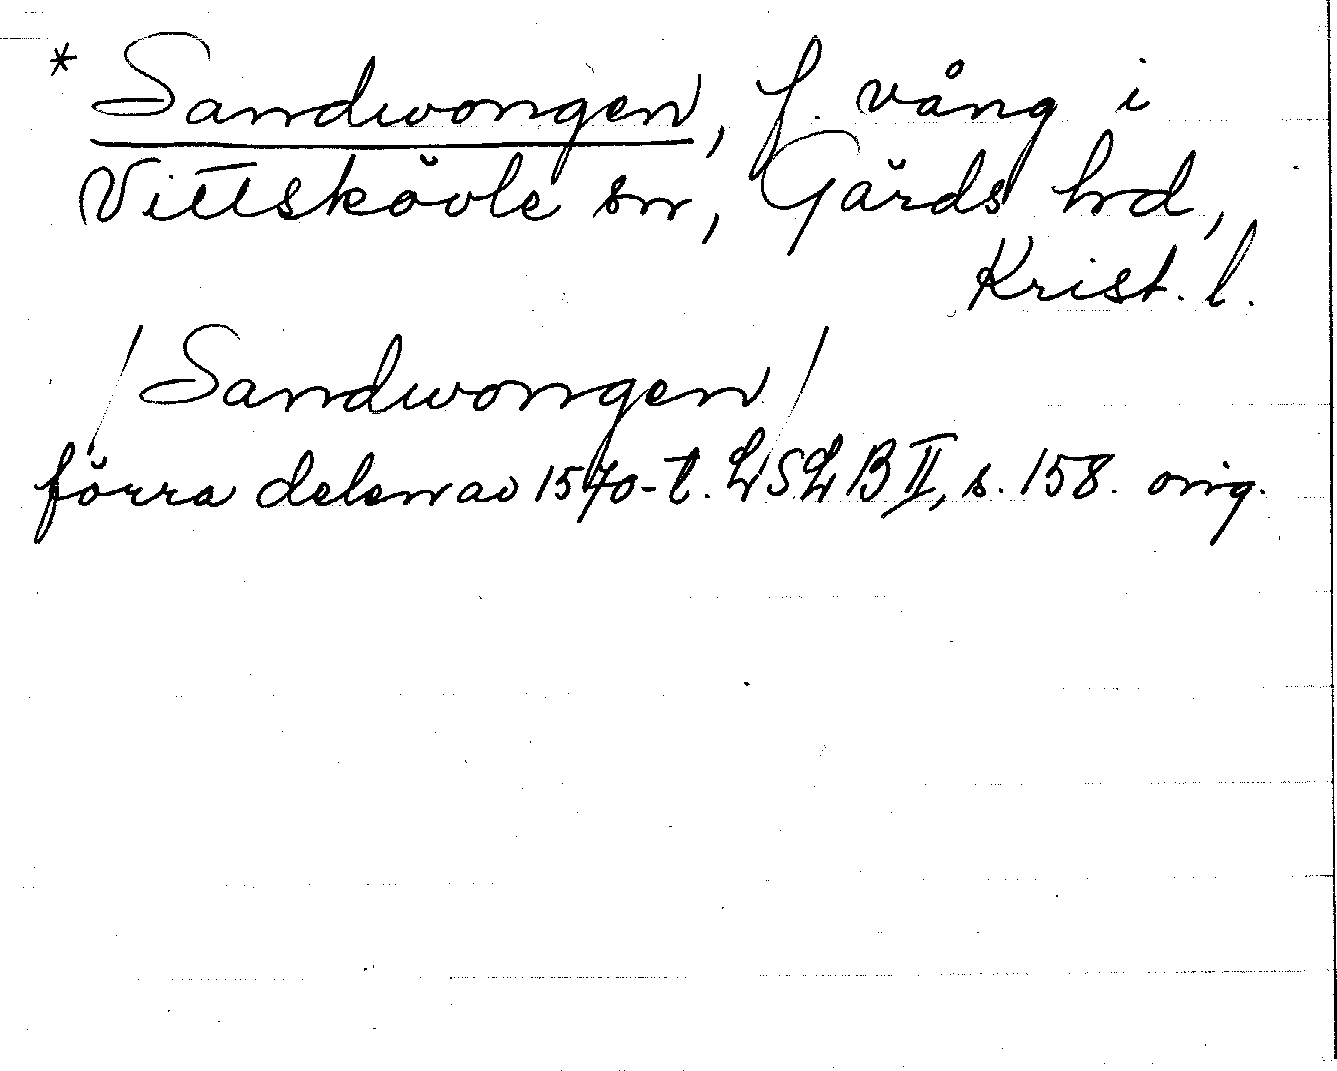 * Sandwongen, f. vång i
Vittskövle sn, Gärds hd,
Krist. l.
/Sandwongen/
förra delen av 1570-t. LSLB II, s. 158. orig.